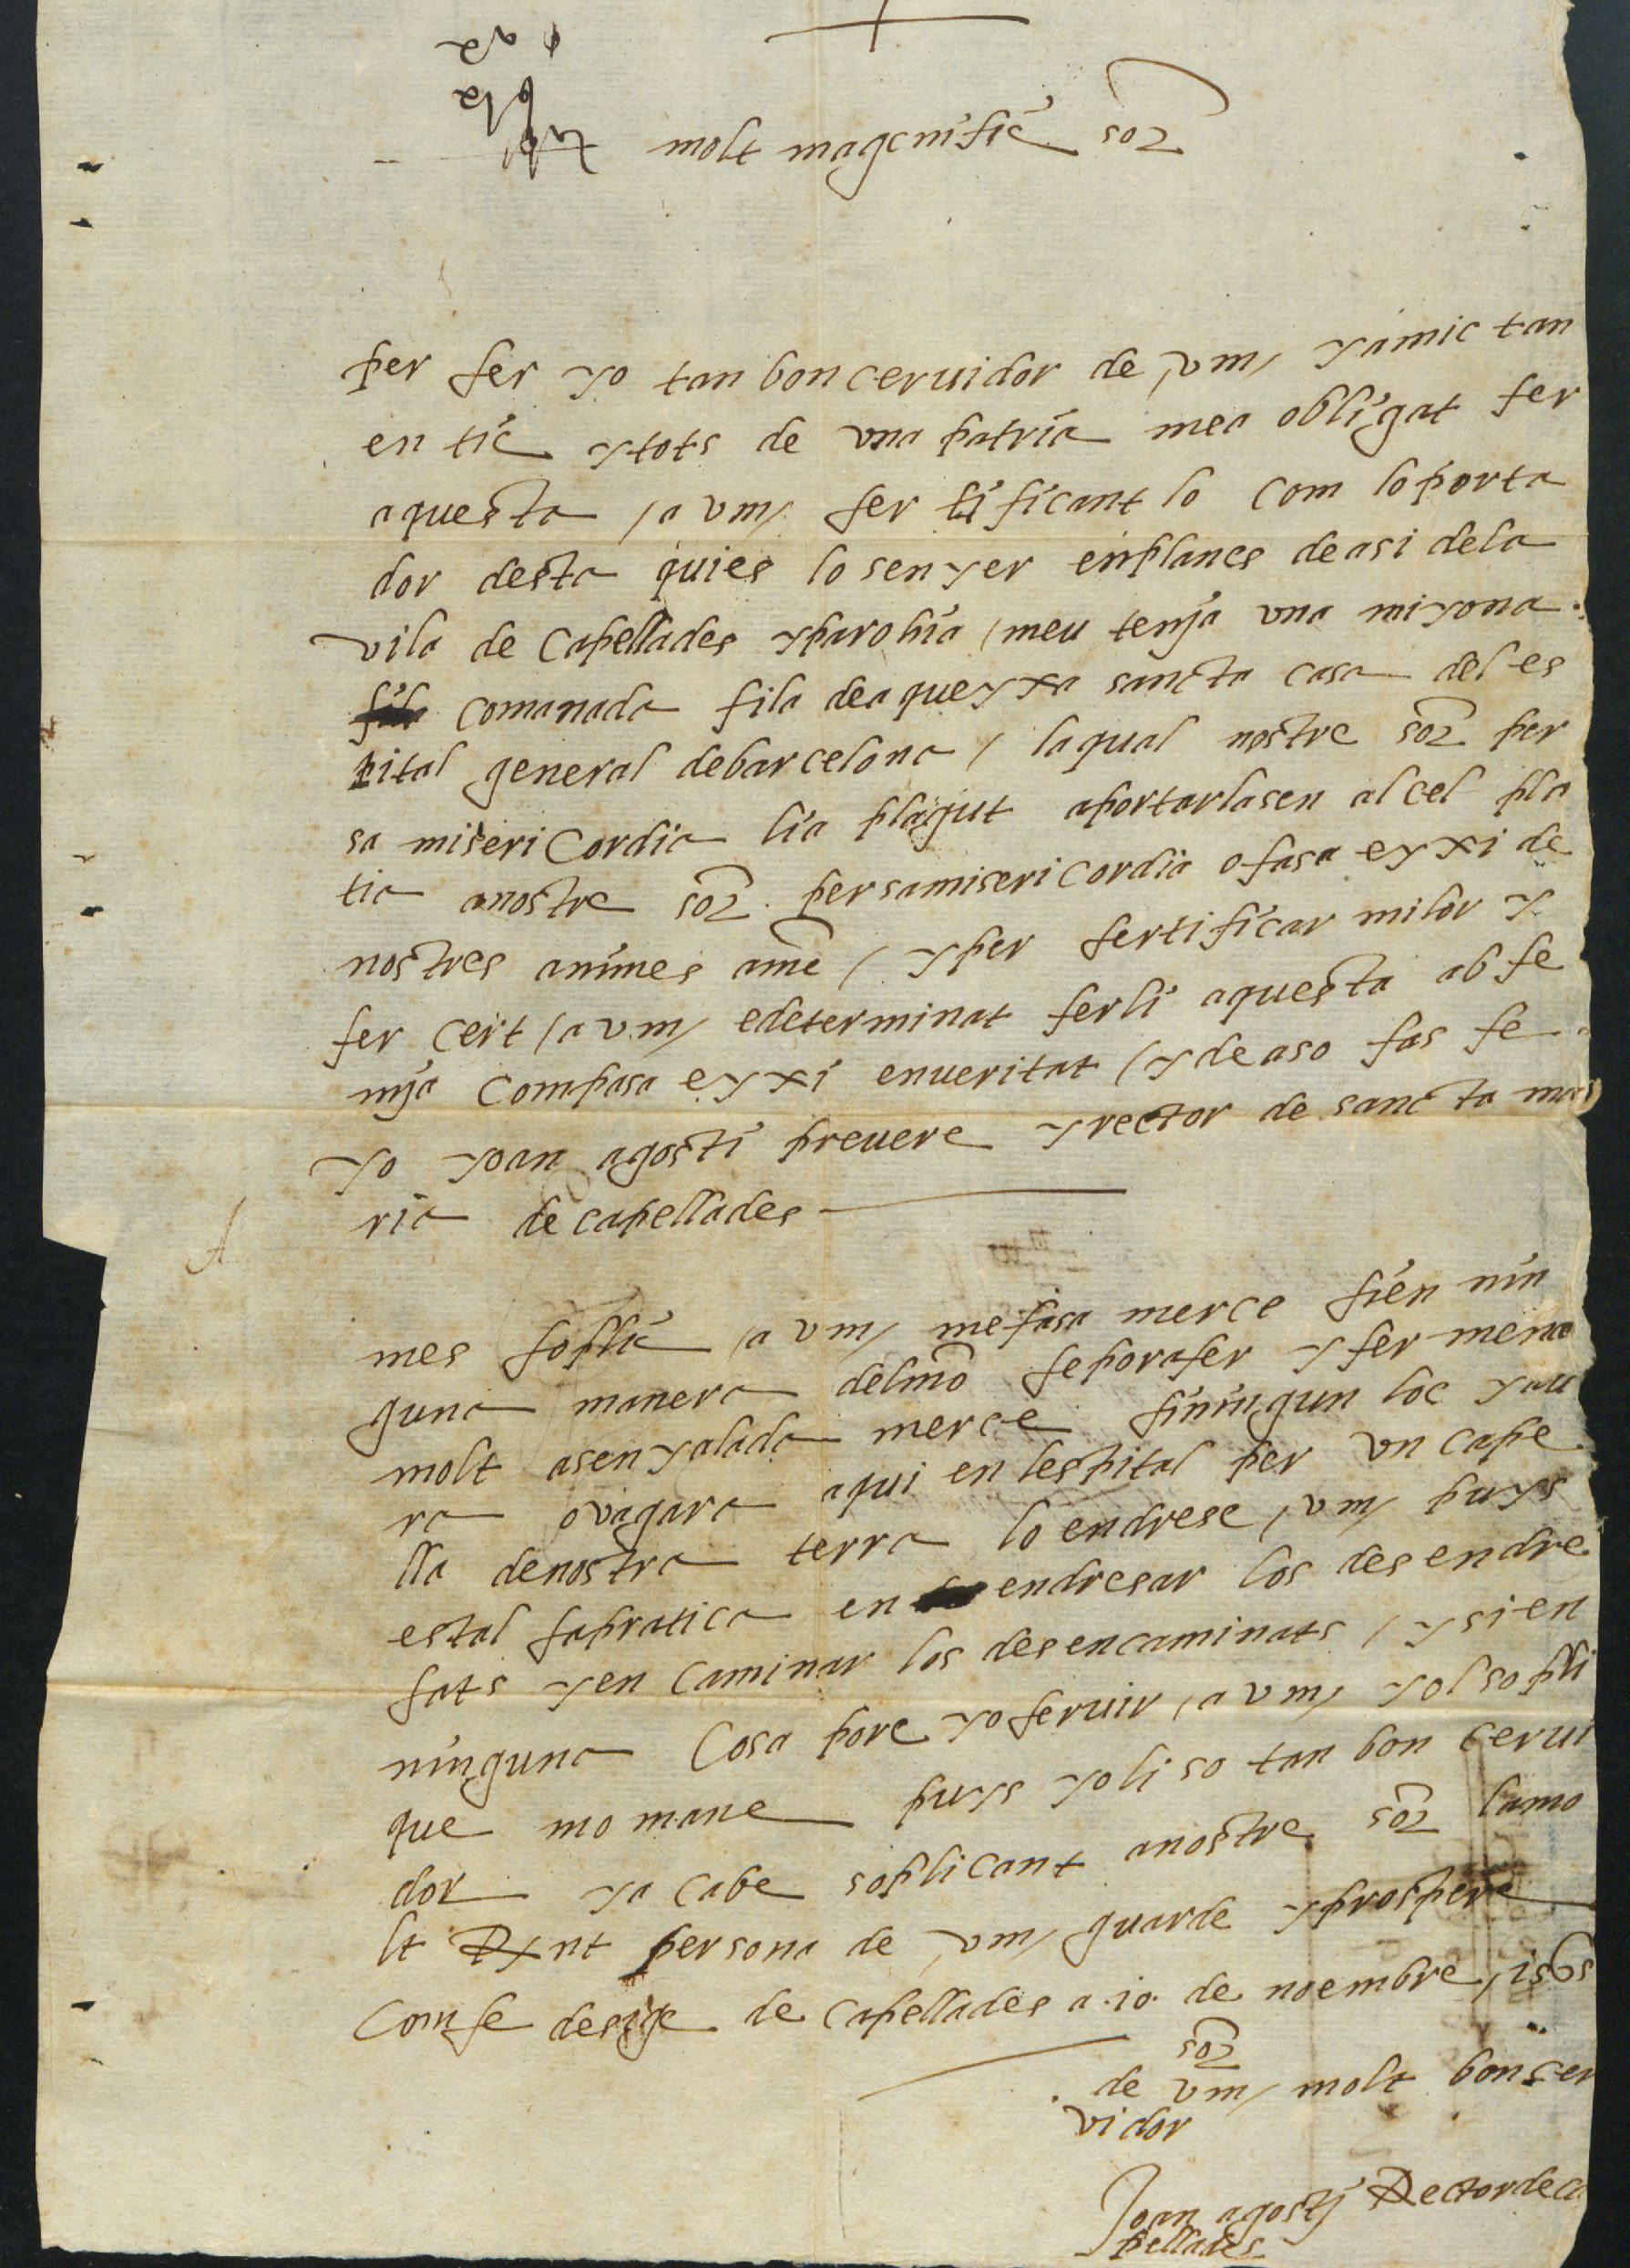 molt magenific sor
per ser yo tan bon ceruidor de vm/ y amic tan
en tic ytots de vna patria mea obligat fer
aquesta /a vm/ sertificant lo com loporta
dor desta quies lo senyer enplanes deasi dela
vila de Capellades yparohia /meu tenja vna miyona
comanada fila deaqueyxa sancta casa del es
pital general debarcelona / laqual nostre sor per
sa misericordia lia plagut aportarlasen alcel pla
tia anostre sor persamisericordia ofasa eyxi de
nostres animes ame / yper sertificar milor y
fer cert /a vm/ edeterminat ferli aquesta ab fe
mja Compasa eyxi enueritat /ydeaso fas fe
yo yoan agosti preuere yrector de sancta ma
ria de capellades
mes soplic /a vm/ mefasa merce sien nin
guna manera delmo seporafer yfer mena
molt asenyalada merce siningun loc yau
ra ovagara aqui en lespital per vn cape
lla denostra terra lo endrese /vm/ puys
estal sapratica en endresar los desendre
sats yen Caminar los desencaminats / ysien
ninguna Cosa pore yoseruir /a vm/ yolsopli
que momane puys yoli so tan bon cerui
dor yacabe soplicant anostre sor lamo
lt Rxnt persona de vm/ guarde yprospere
Comse desige de Capellades a .10. de noembre /1565
sor
de vm/ molt bonser
vidor
Joan agosti Rector de ca
pellades